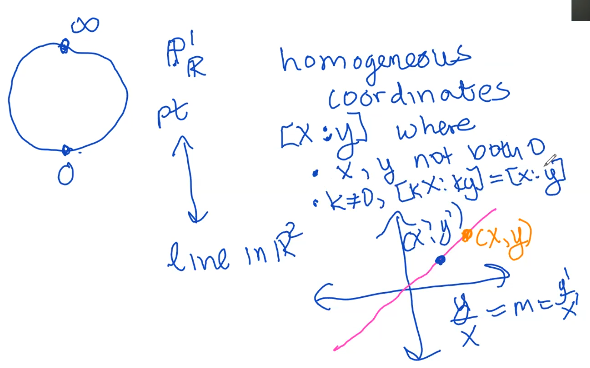 ∞
0
ℙ¹_ℝ
pt
line in ℝ²
homogeneous
coordinates
[x:y] where
• x, y not both 0
• k≠0, [kx:ky]=[x:y]
(x',y')
(x,y)
y/x = m = y'/x'